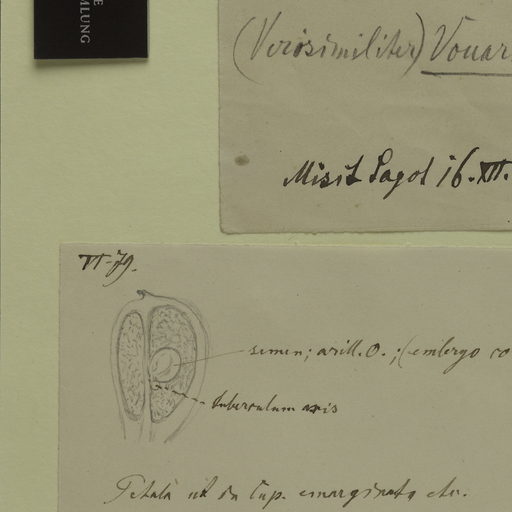 E
MLUNG
(Verosimiliter) Vouar
Misit Sagot 16.XII.
VI-79.
semen; arill. O.; (embryo co
tuberculum axis
Petala ut in Cup. emarginata etc.